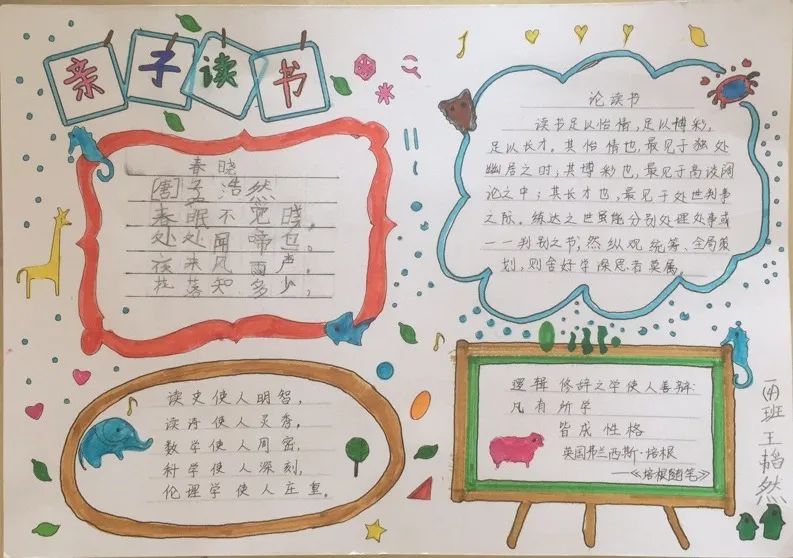 亲子读书
春晓
[唐]孟浩然
春眠不觉晓。
处处闻啼鸟。
夜来风雨声。
花落知多少。
论读书
读书足以怡情,足以博彩,
足以长才。其怡情也,最见于独处
幽居之时;其博彩也,最见于高谈阔
论之中;其长才也,最见于处世判事
之际。练达之世虽能分别处理处事或
一一判别之书,然纵观统筹、全局策
划,则舍好学深思者莫属。
读史使人明智,
读诗使人灵秀,
数学使人周密,
科学使人深刻,
伦理学使人庄重。
逻辑修辞之学使人善辩.
凡有所学
皆成性格
英国弗兰西斯·培根
——《培根随笔》
班王 然